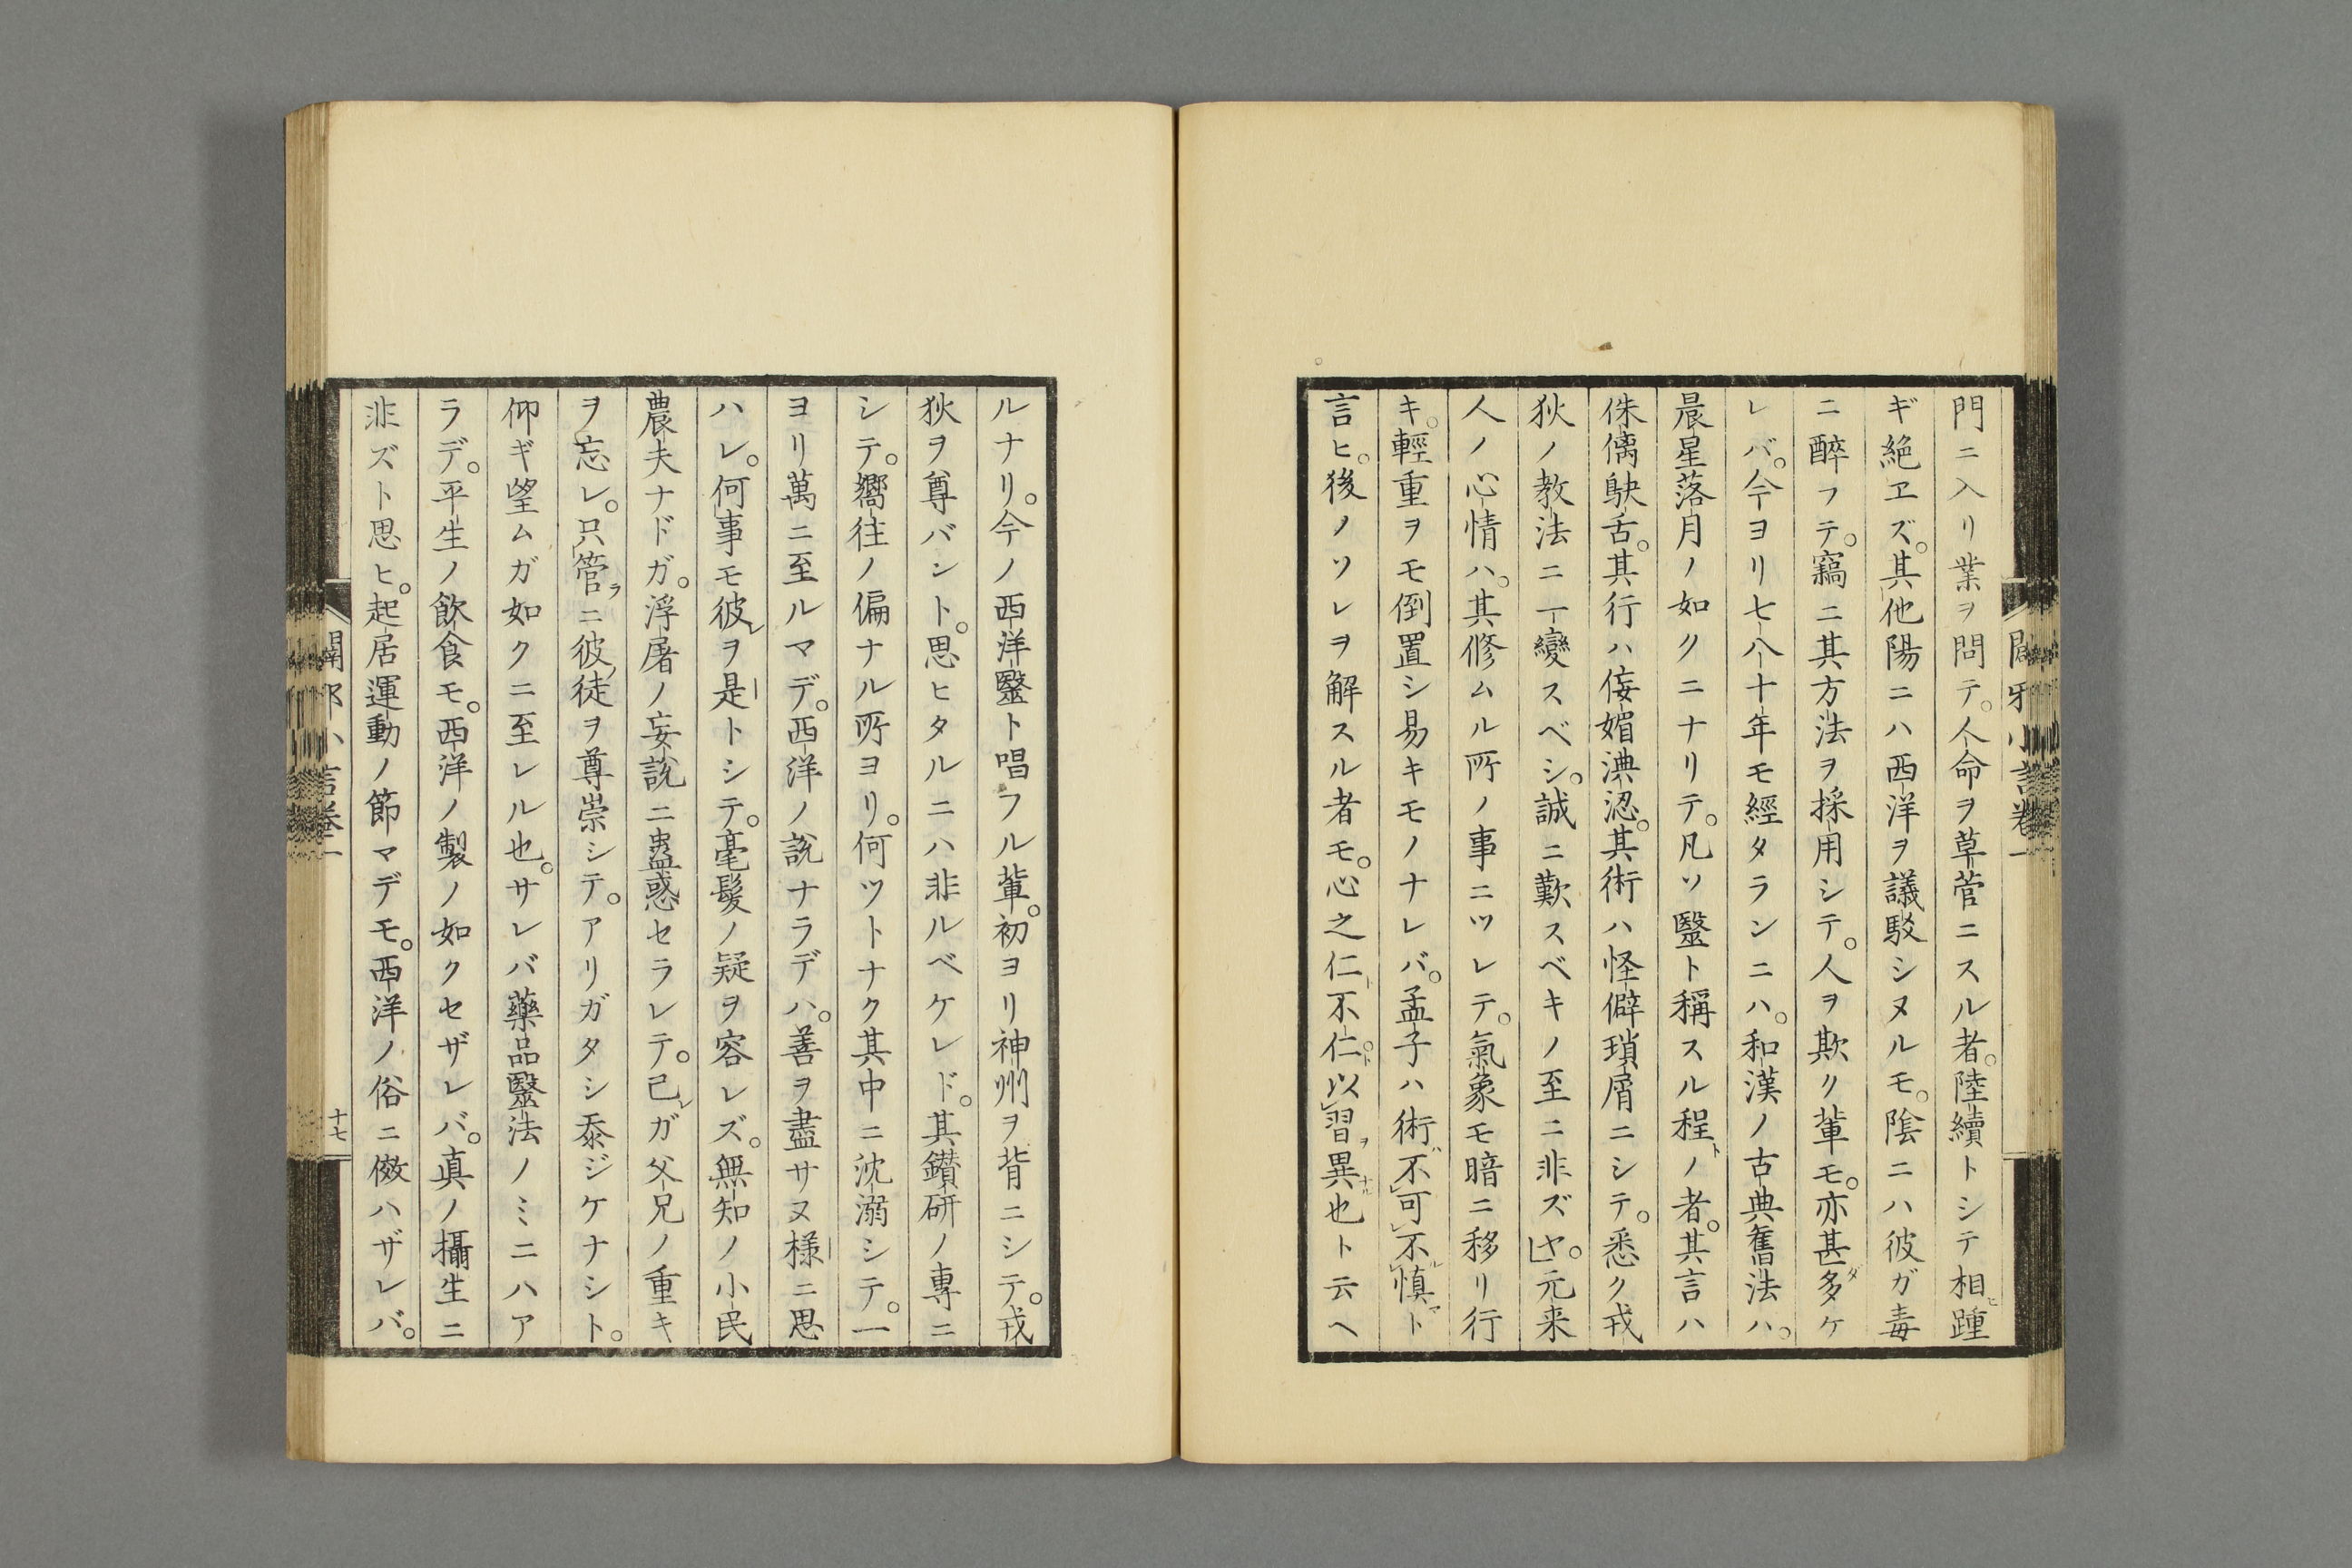 門ニ入リ業ヲ問テ。人命ヲ草菅ニスル者。陸續トシテ相ヒ踵
ギ絶ヱズ。其他陽ニハ西洋ヲ議駁シヌルモ。陰ニハ彼ガ毒
ニ醉フテ。竊ニ其方法ヲ採用シテ。人ヲ欺ク輩モ。亦甚ダ多ケ
レバ。今ヨリ七八十年モ經タランニハ。和漢ノ古典舊法ハ。
晨星落月ノ如クニナリテ。凡ソ醫ト稱スル程ノ者。其言ハ
侏僞鴃舌。其行ハ侫媚淟涊。其術ハ怪僻瑣屑ニシテ。悉ク戎
狄ノ教法ニ一變スベシ。誠ニ歎スベキノ至ニ非ズヤ。元来
人ノ心情ハ。其修ムル所ノ事ニツレテ。氣象モ暗ニ移リ行
キ。輕重ヲモ倒置シ易キモノナレバ。孟子ハ術不可不慎ト
言ヒ。後ノソレヲ解スル者モ。心之仁不仁。以習異也ト云ヘ
ルナリ。今ノ西洋醫ト唱フル輩。初ヨリ神州ヲ背ニシテ。戎
狄ヲ尊バシト。思ヒタルニハ非ルベケレド。其鑽研ノ專ニ
シテ。嚮往ノ偏ナル所ヨリ。何ツトナク其中ニ沈溺シテ。一
ヨリ萬ニ至ルマデ。西洋ノ說ナラデハ。善ヲ盡サヌ様ニ思
ハレ。何事モ彼レヲ是トシテ。毫髮ノ疑ヲ容レズ。無知ノ小民
農夫ナドガ。浮屠ノ妄說ニ蠱惑セラレテ。己レガ父兄ノ重キ
ヲ忘レ。只管ラニ彼ノ徒ヲ尊崇シテ。アリガタシ忝ジケナシト。
仰ギ望ムガ如クニ至レル也。サレバ藥品醫法ノミニハア
ラデ。平生ノ飲食モ。西洋ノ製ノ如クセザレバ。真ノ攝生ニ
非ズト思ヒ。起居運動ノ節マデモ。西洋ノ俗ニ倣ハザレバ。
闢邪小言卷一
十七